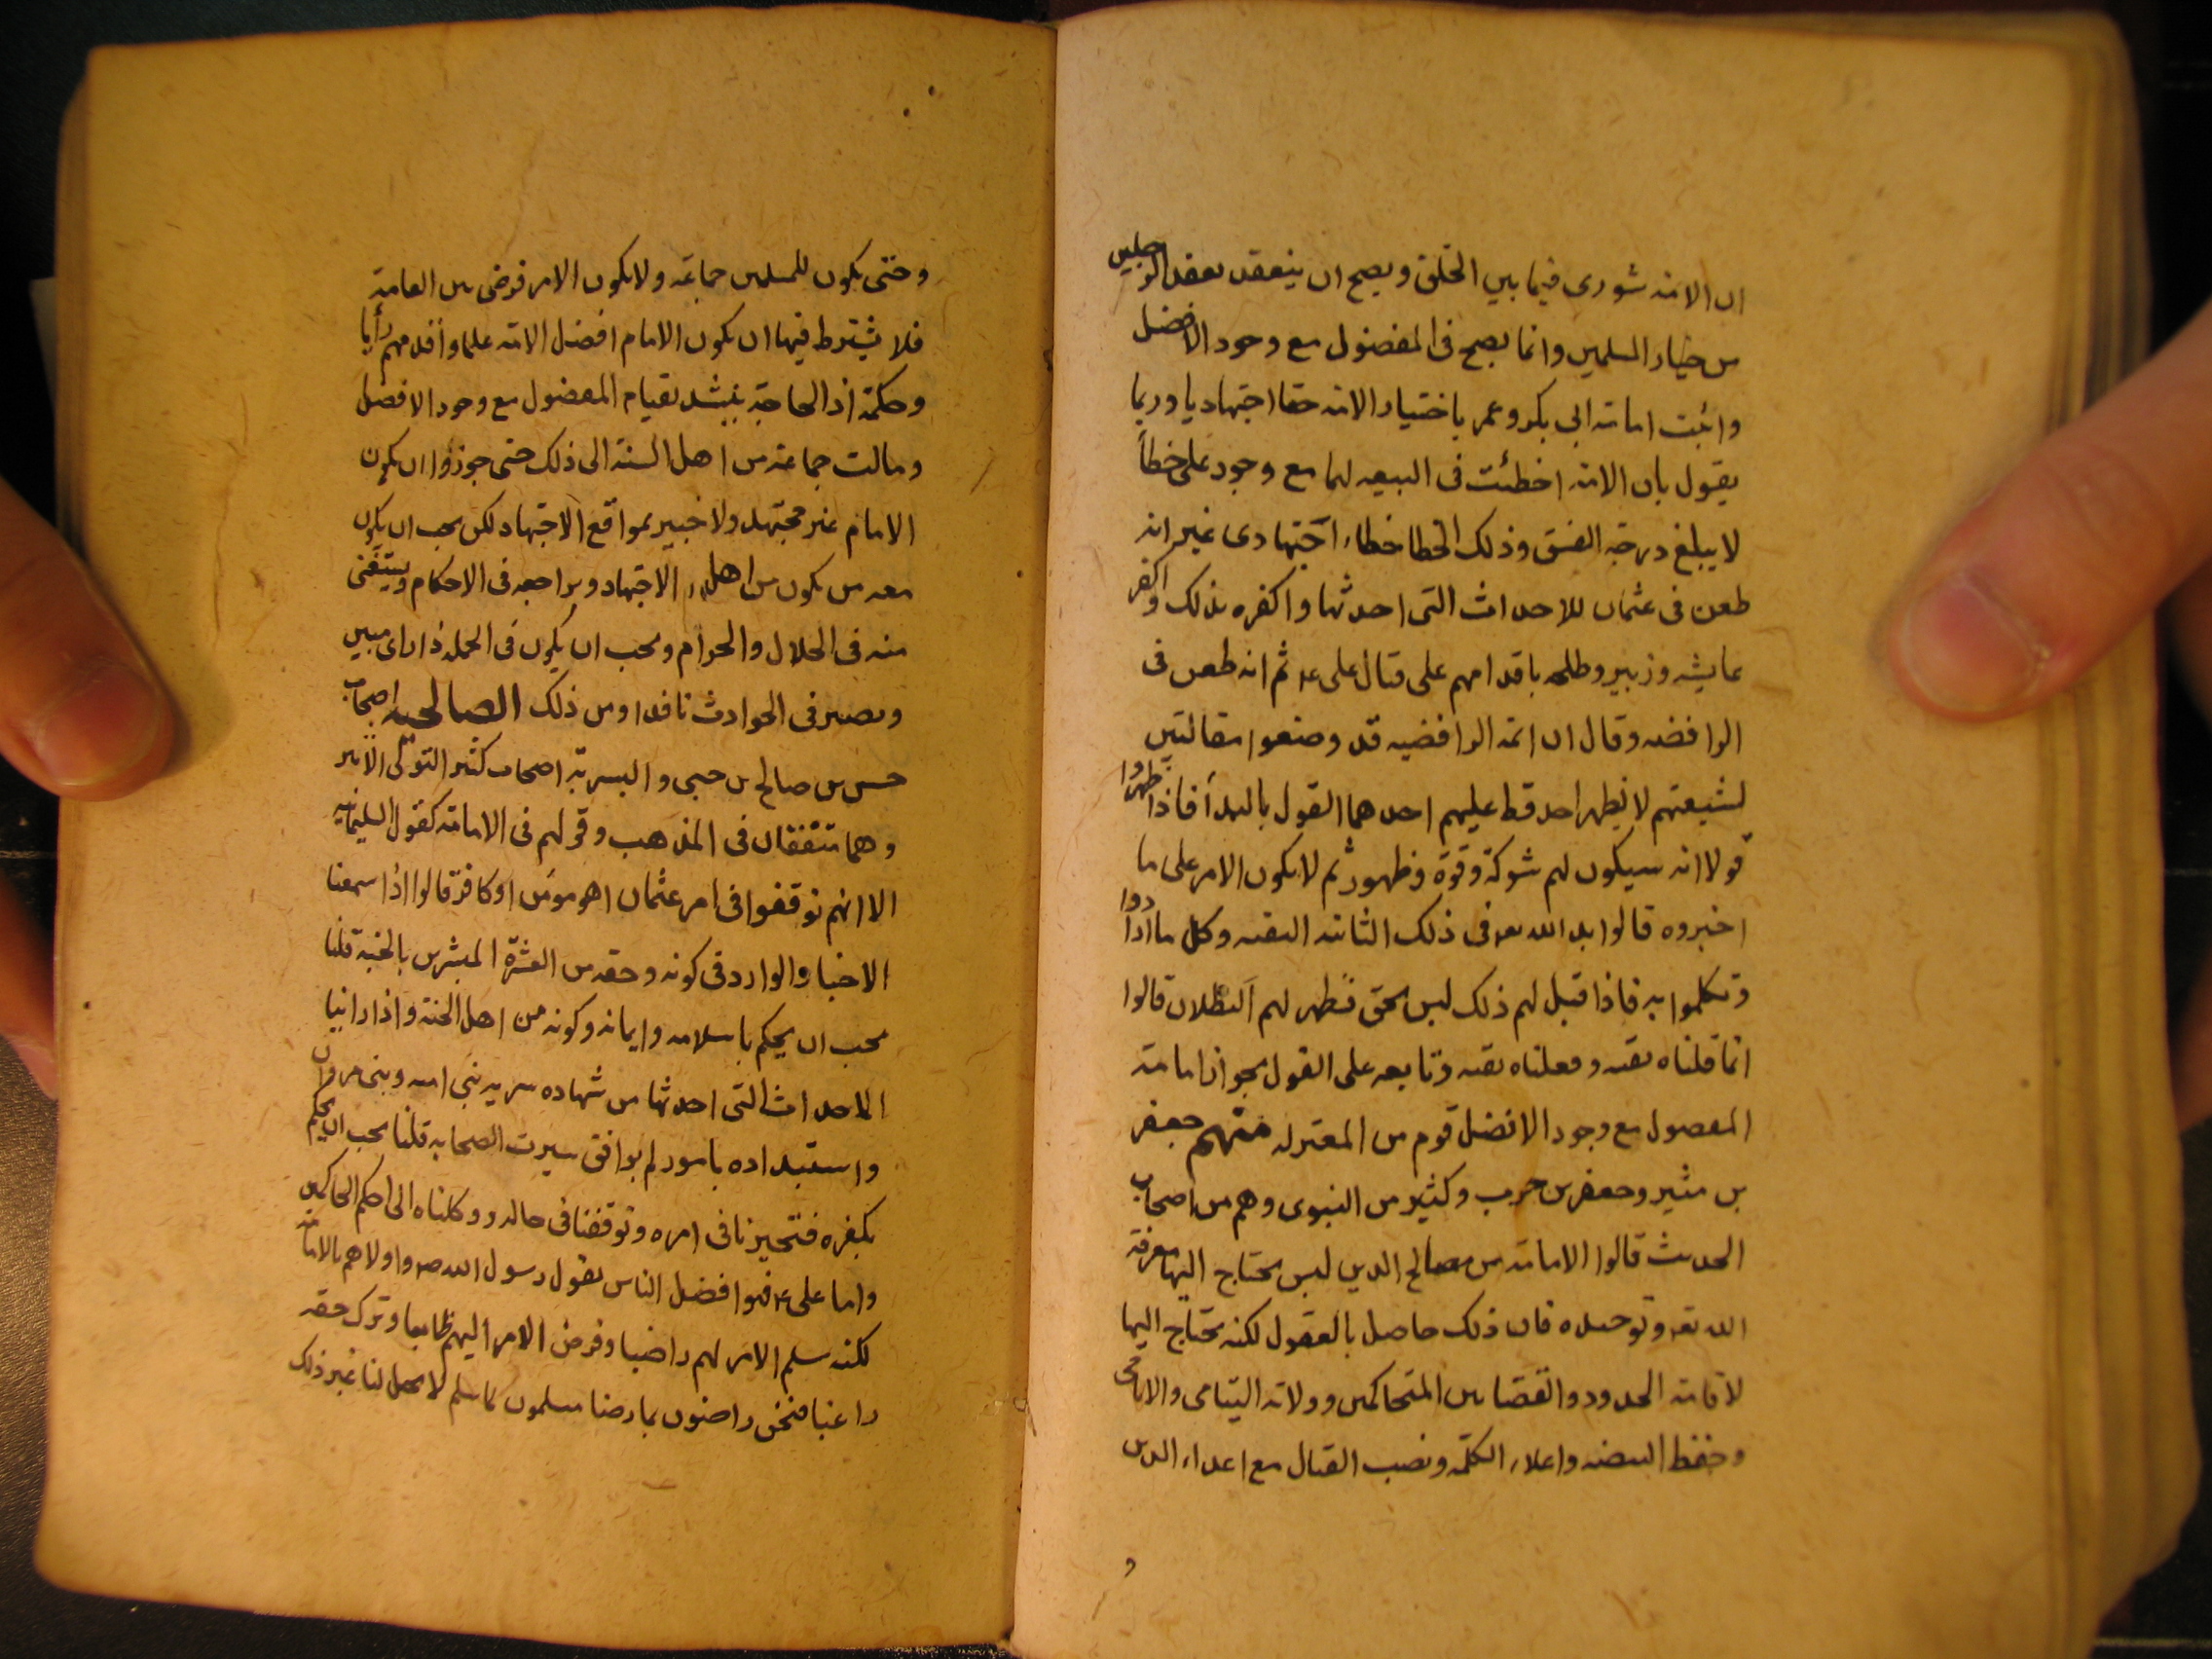 ان الامة شورى فيما بين الخلق ويصح ان ينعقد بعقد الرجلين
من خيار المسلمين وانما يصح فى المفضول مع وجود الافضل
واثبت امامة ابى بكر وعمر باختيار الامة حقا اجتهاديا وربما
يقول بان الامة اخطئت فى البيعه لهما مع وجود على خطأ
لا يبلغ درجة الفسق وذلك الخطا خطاء اجتهادى غير انه
طعن فى عثمان للاحداث التى احدثها واكفره بذلك واكفر
عايشه وزبير وطلحه باقدامهم على قتال على ع ثم انه طعن فى
الرافضه وقال ان ائمة الرافضيه قد وضعوا مقالتين
لشيعتهم لا يظهر احد قط عليهم احدهما القول بالبدأ فاذا اظهروا
قولا انه سيكون لهم شوكة وقوة وظهور ثم لا يكون الامر على ما
اخبروه قالوا بدا لله تعـ فى ذلك الثانية التقيه وكل ما ارادوا
وتكلموا به فاذا قيل لهم ذلك ليس بحق فظهر لهم البطلان قالوا
انما قلناه تقيه وفعلناه تقيه وتابعه على القول بجواز امامة
المفضول مع وجود الافضل قوم من المعتزله منهم جعفر
بن مثير وجعفر بن حرب وكثير من النبوى وهم من اصحاب
الحديث قالوا الامامة من مصالح الدين ليس يحتاج اليها معرفة
الله تعـ وتوحيده فان ذلك حاصل بالعقول لكنه يحتاج اليها
لاقامة الحدود والقضا بين المتحاكمين وولاة اليتامى والايامى
وحفظ البيضه واعلاء الكلمة ونصب القتال مع اعداء الدين
و
وحتى يكون للمسلمين جماعة ولا يكون الامر فوضى بين العامة
فلا يشترط فيها ان يكون الامام افضل الامة علما واقدمهم رأيا
وحكمة اذ الحاجة ينشد بقيام المفضول مع وجود الافضل
ومالت جماعة من اهل السنة الى ذلك حتى جوزوا ان يكون
الامام غير مجتهد ولا خبير بمواقع الاجتهاد لكن يجب ان يكون
معه من يكون من اهل الاجتهاد ويراجعه فى الاحكام ويستفتى
منه فى الحلال والحرام ويجب ان يكون فى الجمله ذا راى مبين
وبصير فى الحوادث نافدا ومن ذلك الصالحيه اصحاب
حسن بن صالح بن حيى والبسرية اصحاب كثير التوكى الابتر
وهما متفقان فى المذهب وقولهم فى الامامة كقول السليمانيه
الا انهم توقفوا فى امر عثمان اهو مومن او كافر قالوا اذا سمعنا
الاخبار الوارد فى كونه وحقه من العشرة المبشرين بالجنة قلنا
يجب ان يحكم باسلامه وايمانه وكونه من اهل الجنة واذا راينا
الاحداث التى احدثها من شهاده سريه بنى اميه وبنى مروان
واستبداده بامور لم يوافق سيرت الصحابه قلنا يجب ان يحكم
بكفره فتحيرنا فى امره وتوقفنا فى حاله ووكلناه الى احكم الحاكمين
واما على ع فهو افضل الناس بقول رسول الله ص واولاهم بالامامة
لكنه سلم الامر لهم راضيا وفوض الامر اليهم طايعا وترك حقه
راغبا فنحن راضون بما رضا مسلمون لما سلم لا يحل لنا غير ذلك